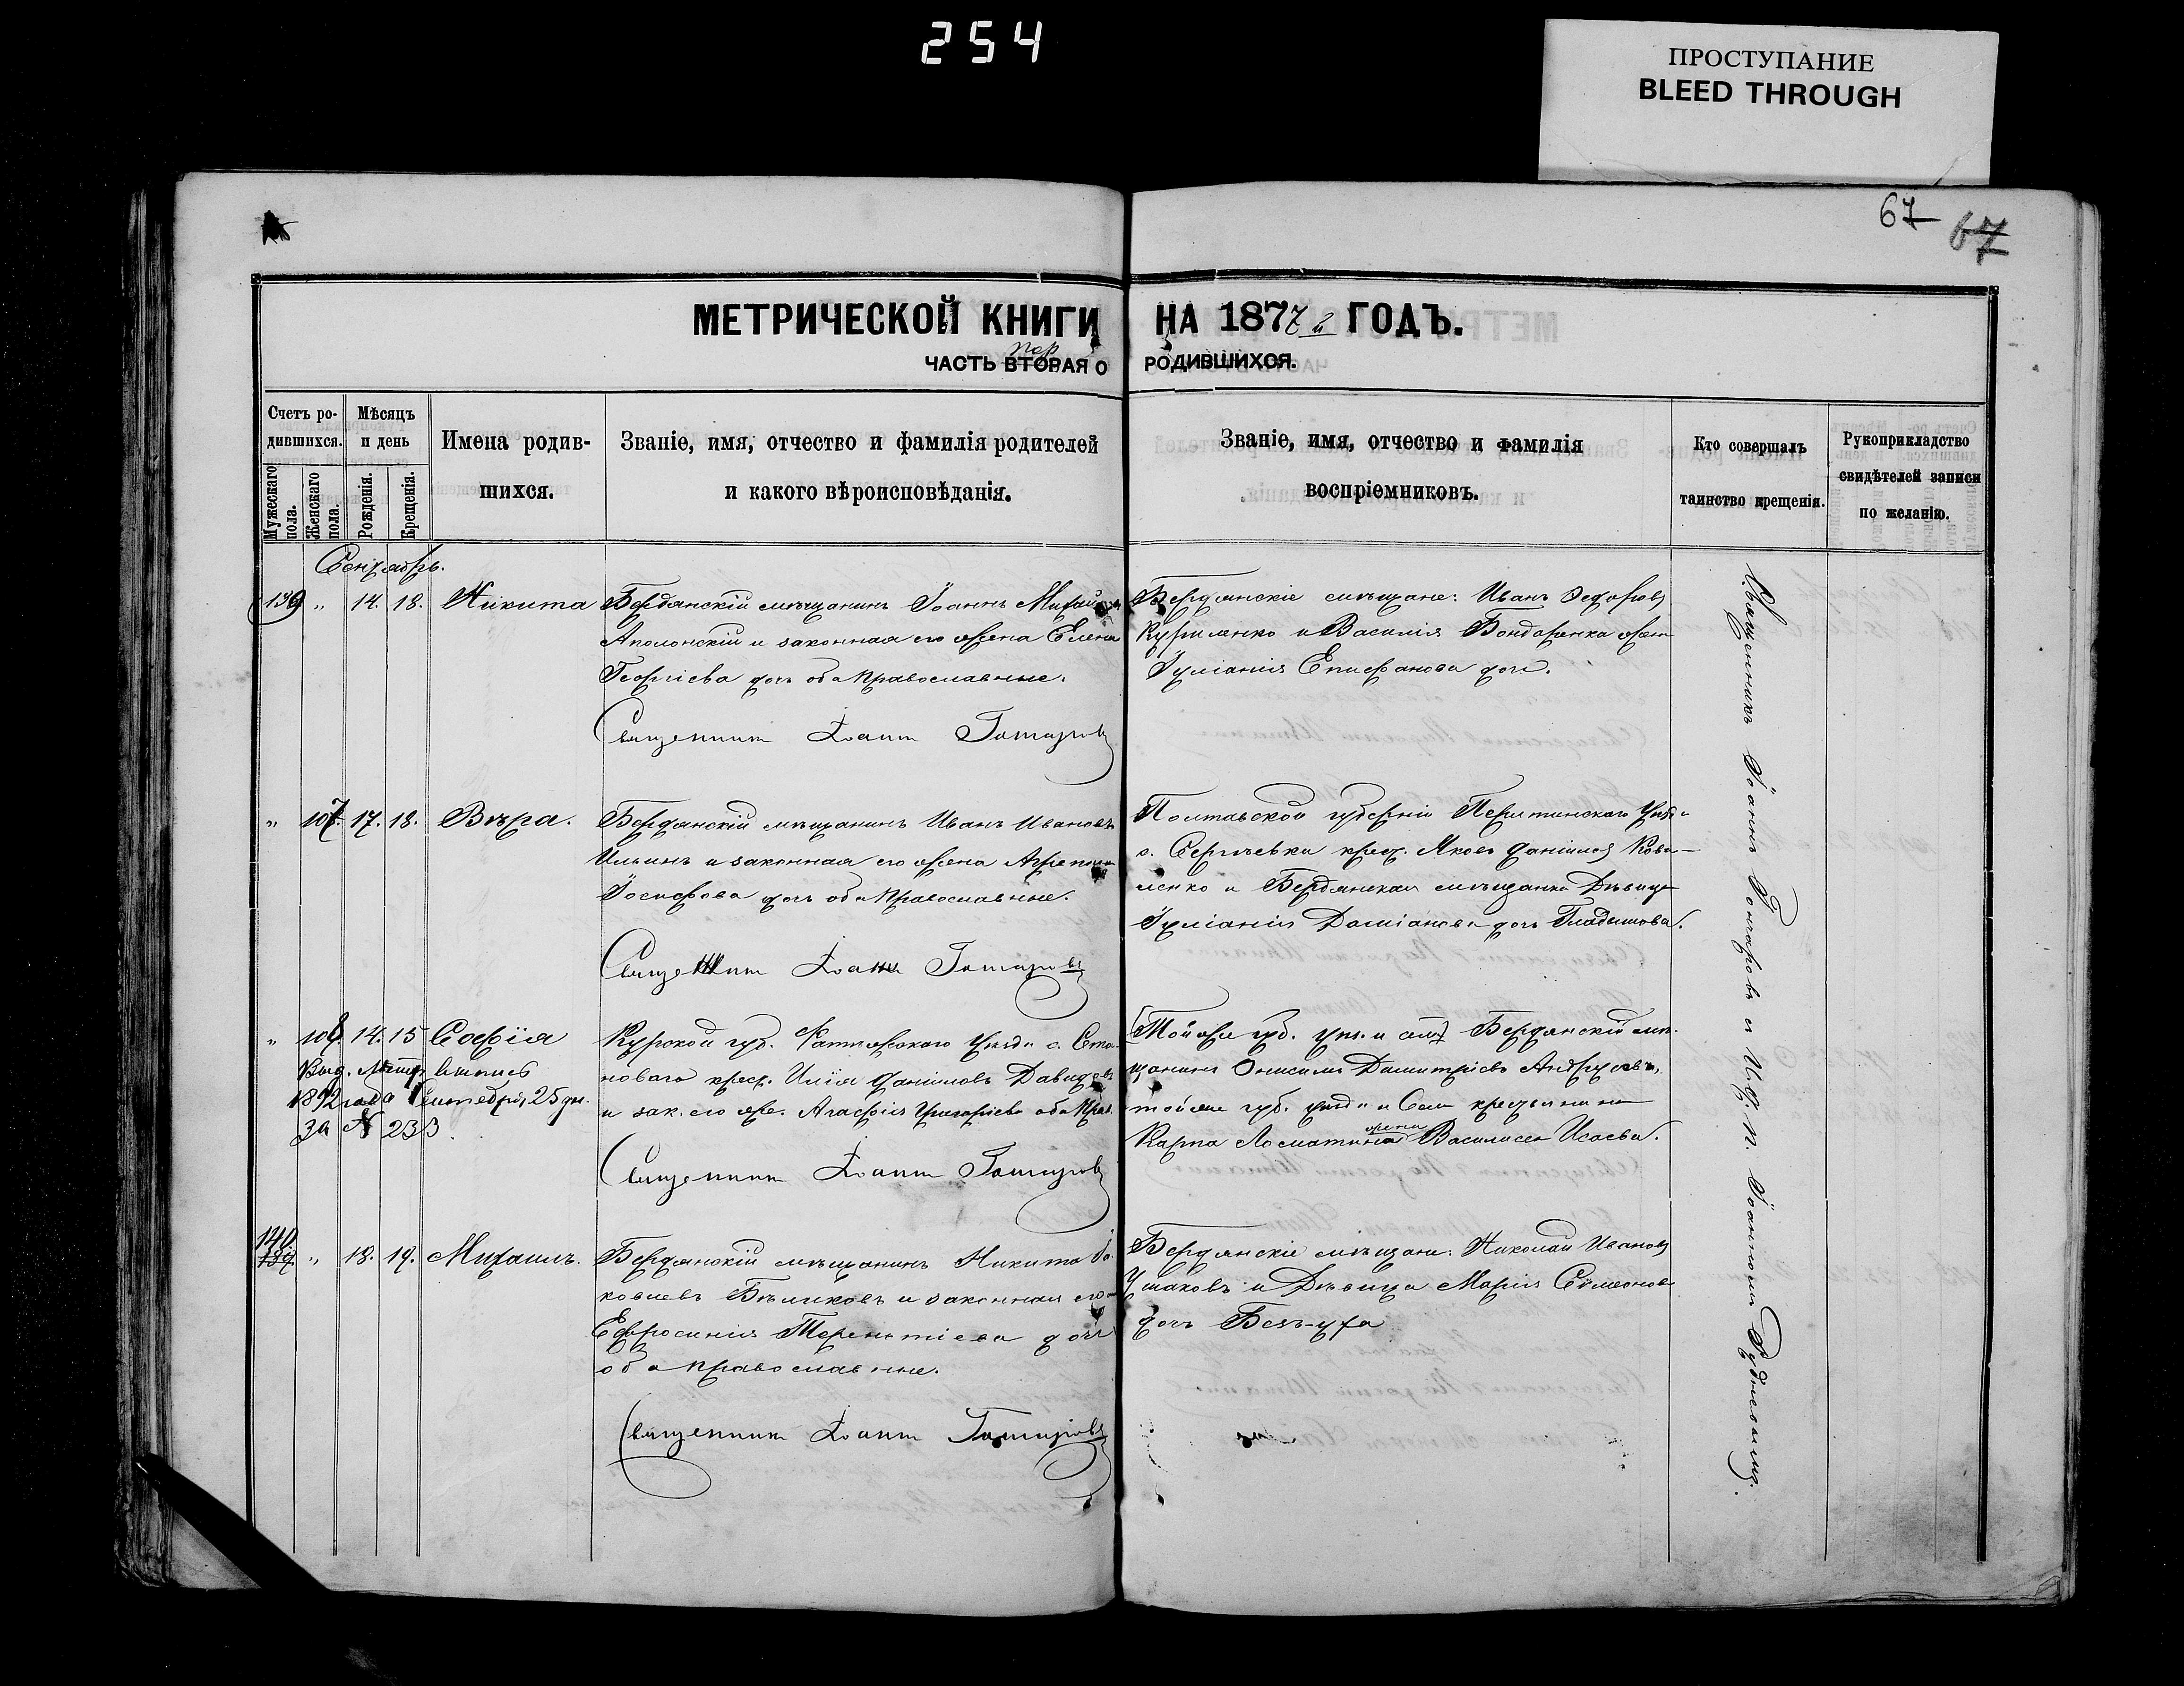 254
ПРОСТУПАНИЕ
BLEED THROUGH
67 67
МЕТРИЧЕСКОЙ КНИГИ НА 1877й ГОДЪ.
пер
ЧАСТЬ ВТОРАЯ О РОДИВШИХСЯ.
Счетъ родившихся.
Мужескаго пола.
Женскаго пола.
Мѣсяцъ и день
Рожденія.
Крещенія.
Имена родившихся.
Званіе, имя, отчество и фамилія родителей
и какого вѣроисповѣданія.
Званіе, имя, отчество и фамилія
воспріемниковъ.
Кто совершалъ
таинство крещенія.
Рукоприкладство
свидѣтелей записи
по желанію.
Сентябрь.
139 " 14. 18. Никита
Бердянскій мѣщанинъ Іоаннъ
Аполонскій и законная его жена Елена
Георгіева дочь оба православные.
Священникъ Іоаннъ Гончаровъ
Бердянскіе мѣщане: Иванъ Федоровъ
Куриленко и Василія Бондаренка жена
Іуліанія Епифанова дочь.
" 107. 17. 18. Вѣра.
Бердянскій мѣщанинъ Иванъ Ивановъ
Ильинъ и законная его жена
Іосифова дочь оба православные.
Священникъ Іоаннъ Гончаровъ
Полтавской губерніи
с. Сергѣевки крест. Яковъ Даніиловъ Кова-
ленко и Бердянская мѣщанка Дѣвица
Іуліанія Даміанова дочь Гладышова.
" 108. 14. 15 Софія
Выд. Метр. выпись
1892 года Сентября 25 дн.
за № 233.
Курской губ. уѣзда с.
новаго крест. Илія Даніиловъ Давидовъ
и зак. его же. Агафія Григоріева оба прав.
Священникъ Іоаннъ Гончаровъ
Той же губ. Бердянскій мѣ-
щанинъ Онисимъ Димитріевъ
той же губ. уѣзда и села крестьянина
Карпа жена Василиса Исаева.
140 139 " 18. 19. Михаилъ.
Бердянскій мѣщанинъ Никита Іа-
ковлевъ Бѣликовъ и законная его
Евфросинія Терентіева дочь
оба православные.
Священникъ Іоаннъ Гончаровъ
Бердянскіе мѣщане: Николай Ивановъ
Ушаковъ и Дѣвица Марія Симеонова
дочь
Священникъ Іоаннъ Гончаровъ съ Іоанномъ Рудневымъ.